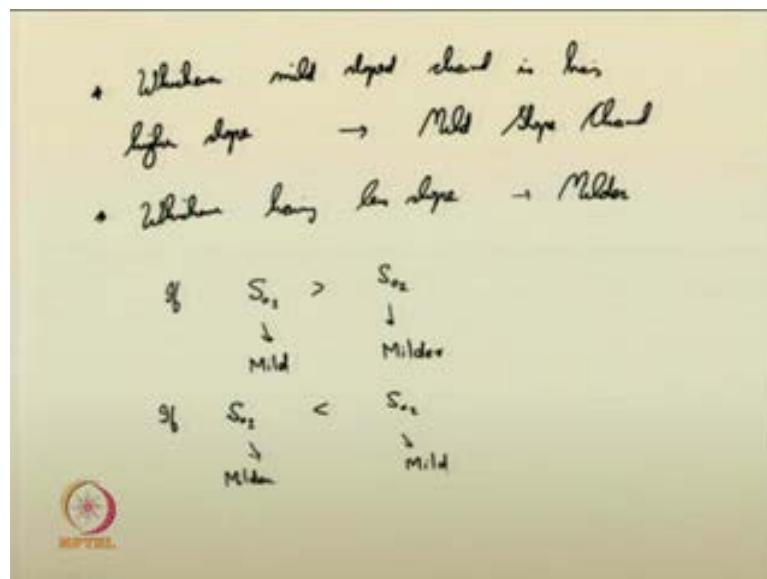 * Whichever mild sloped channel is has
higher slope → Mild Slope Channel
* Whichever having less slope → Milder
If S₀₁ > S₀₂
↓ ↓
Mild Milder
If S₀₁ < S₀₂
↓ ↓
Milder Mild
NPTEL